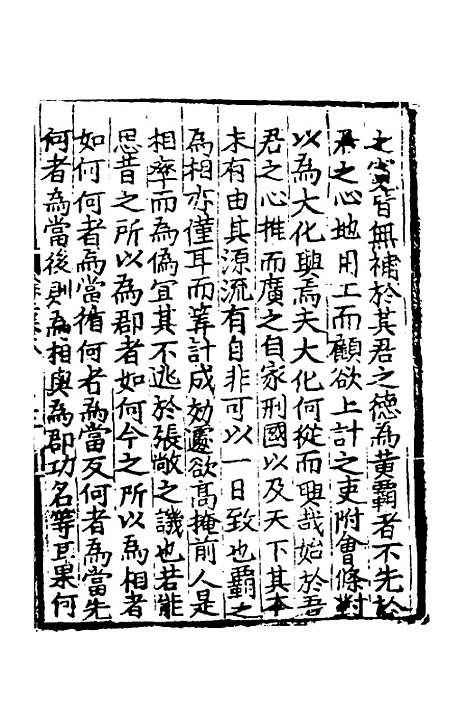 之實皆無補於其君之德為黄霸者不先於
君之心地用工而顧欲上計之吏附會條對
以為大化興焉夫大化何從而興哉始於吾
君之心推而廣之自家刑國以及天下其本
末有由其源流有自非可以一日致也霸之
為相亦僅耳而筭計成効遽欲髙掩前人是
相率而為偽宜其不逃於張敞之譏也若能
思昔之所以為郡者如何今之所以為相者
如何何者為當循何者為當反何者為當先
何者為當後則為相與為郡功名等耳果何